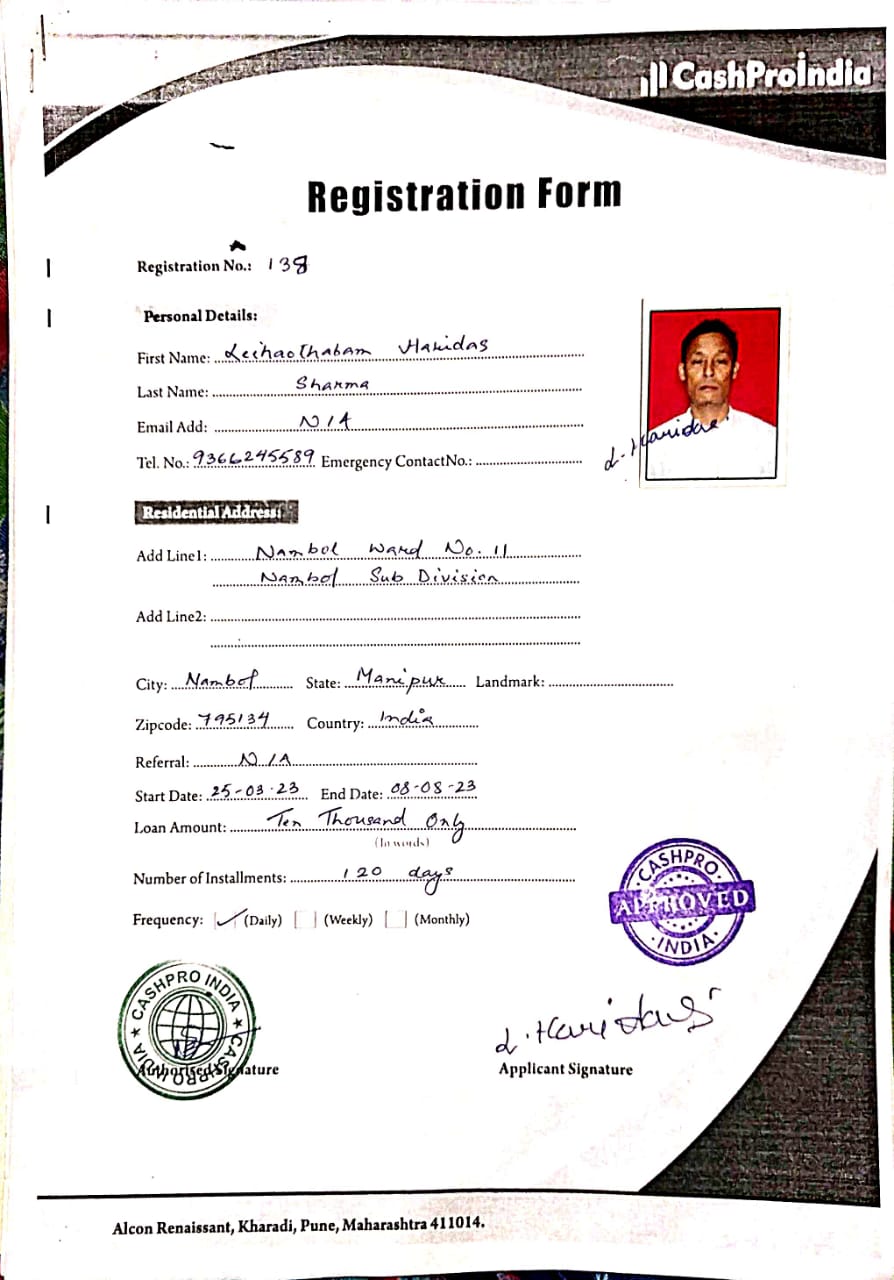 CashProIndia
Registration Form
Registration No.: 138
Personal Details:
First Name: Leihaothabam Haridas
Last Name: Sharma
Email Add: N/A
Tel. No.: 9366245589 Emergency ContactNo.:
L. Haridas
Residential Address:
Add Line1: Nambol Ward No. 11
Nambol Sub Division
Add Line2:
City: Nambol State: Manipur Landmark:
Zipcode: 795134 Country: India
Referral: N/A
Start Date: 25-03-23 End Date: 08-08-23
Loan Amount: Ten Thousand Only
(In words)
Number of Installments: 120 days
Frequency: (Daily) (Weekly) (Monthly)
CASHPRO
APPROVED
INDIA
CASHPRO INDIA ★ CASHPRO INDIA ★
Authorised Signature
L. Haridas
Applicant Signature
Alcon Renaissant, Kharadi, Pune, Maharashtra 411014.